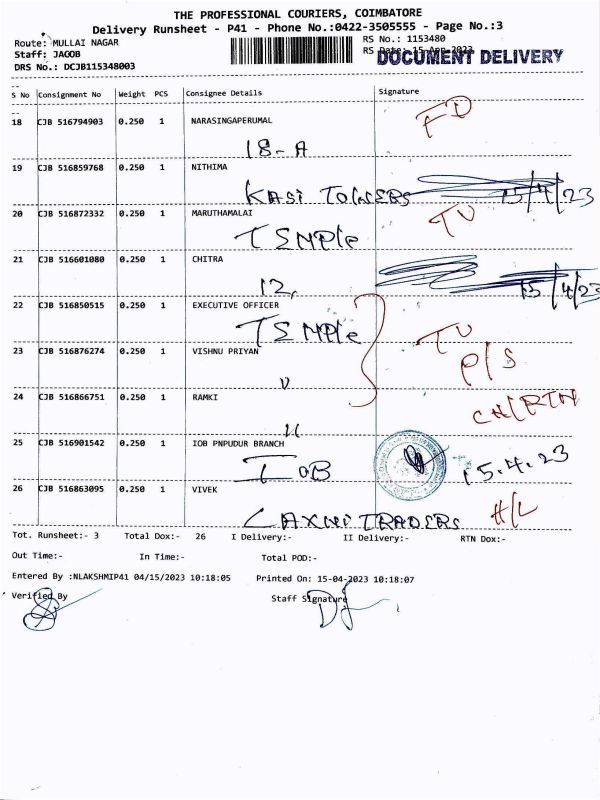 THE PROFESSIONAL COURIERS, COIMBATORE
Delivery Runsheet - P41 - Phone No.:0422-3505555 - Page No.:3
Route: MULLAI NAGAR
RS No.: 1153480
Staff: JACOB
RS Date: 15-Apr-2023
DOCUMENT DELIVERY
DRS No.: DCJB115348003
S No Consignment No Weight PCS Consignee Details Signature
18 CJB 516794903 0.250 1 NARASINGAPERUMAL FD
18-A
19 CJB 516859768 0.250 1 NITHIMA
KASI TOWERS 15/4/23
20 CJB 516872332 0.250 1 MARUTHAMALAI
TEMPle
21 CJB 516601080 0.250 1 CHITRA
12, 15/4/23
22 CJB 516850515 0.250 1 EXECUTIVE OFFICER
TEMPle
23 CJB 516876274 0.250 1 VISHNU PRIYAN P/S
24 CJB 516866751 0.250 1 RAMKI CH/RTN
25 CJB 516901542 0.250 1 IOB PNPUDUR BRANCH
IOB 15.4.23
26 CJB 516863095 0.250 1 VIVEK
LAXMI TRADERS
Tot. Runsheet:- 3 Total Dox:- 26 I Delivery:- II Delivery:- RTN Dox:-
Out Time:- In Time:- Total POD:-
Entered By :NLAKSHMIP41 04/15/2023 10:18:05 Printed On: 15-04-2023 10:18:07
Verified By Staff Signature